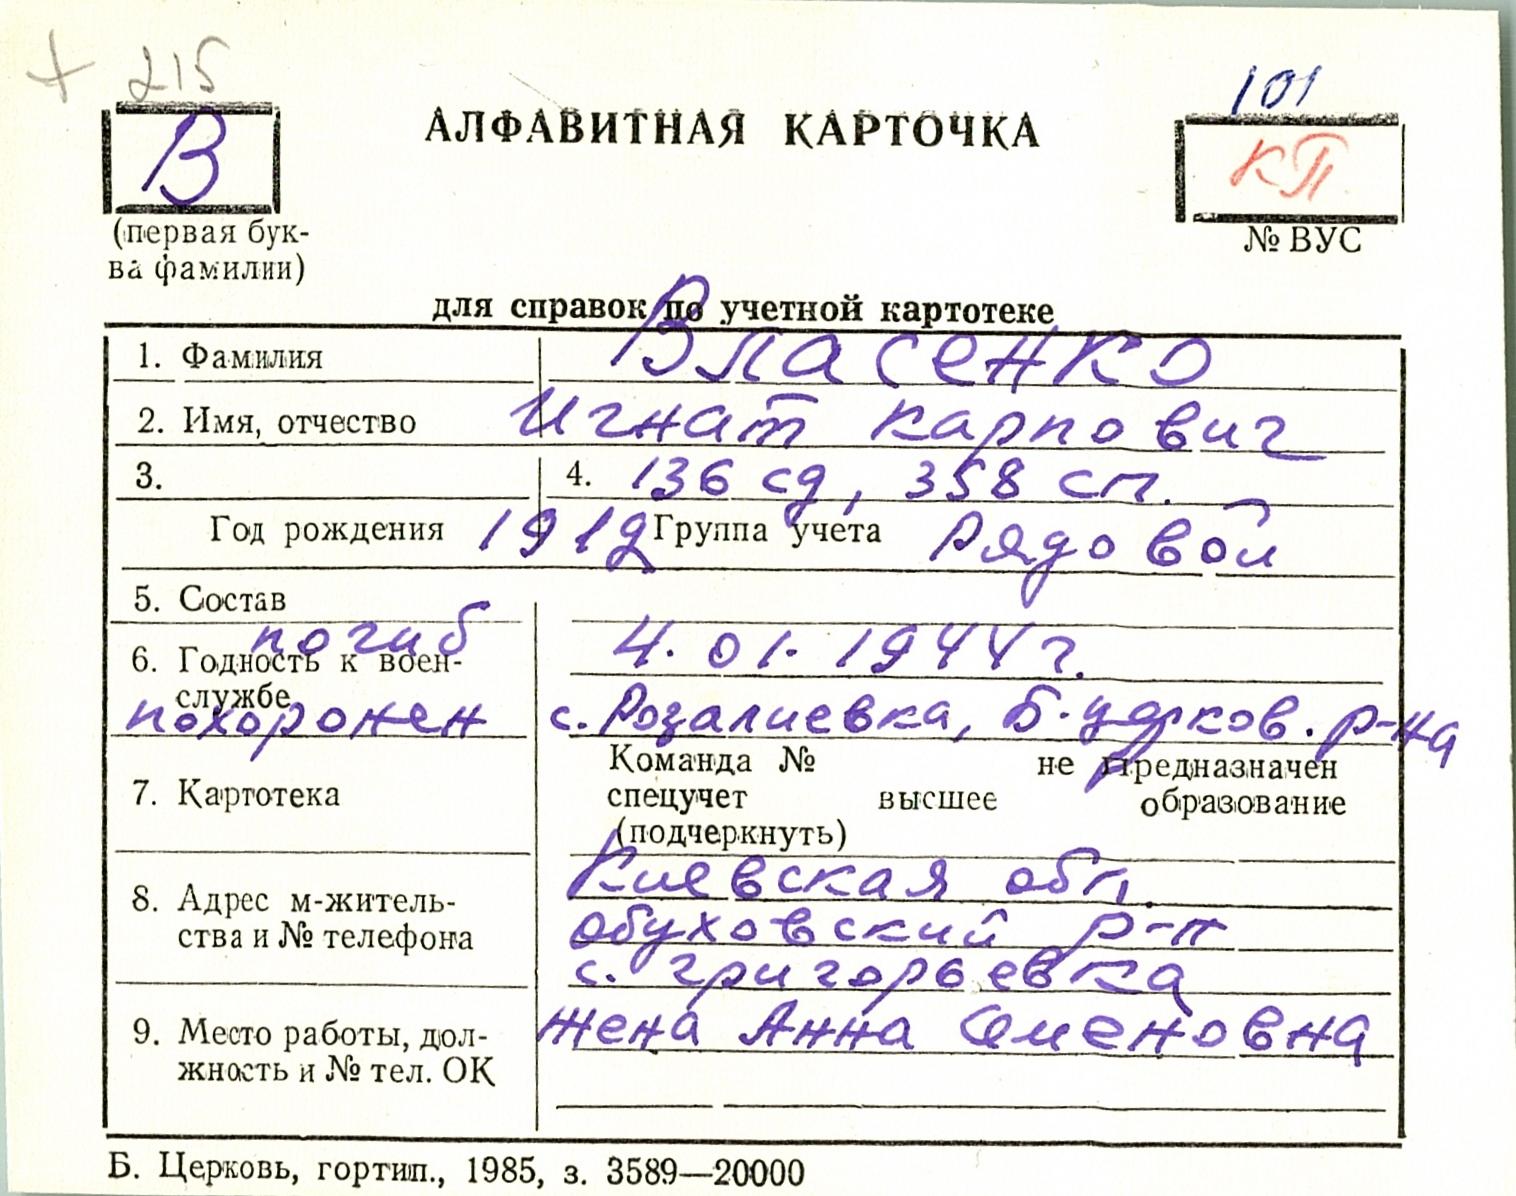 + 215
101
В
АЛФАВИТНАЯ КАРТОЧКА
КП
(первая бук-
ва фамилии)
№ ВУС
для справок по учетной картотеке
1. Фамилия Власенко
2. Имя, отчество Игнат Карпович
3. 4. 136 сд, 358 сп.
Год рождения 1912 Группа учета Рядовой
5. Состав
погиб 4.01.1944 г.
6. Годность к воен-
службе
похоронен с. Розалиевка, Б-церков. р-на
Команда № не предназначен
7. Картотека спецучет высшее образование
(подчеркнуть)
Киевская обл.
8. Адрес м-житель-
ства и № телефона обуховский р-н
с. григорьевка
9. Место работы, дол- жена Анна Семеновна
жность и № тел. ОК
Б. Церковь, гортип., 1985, з. 3589—20000